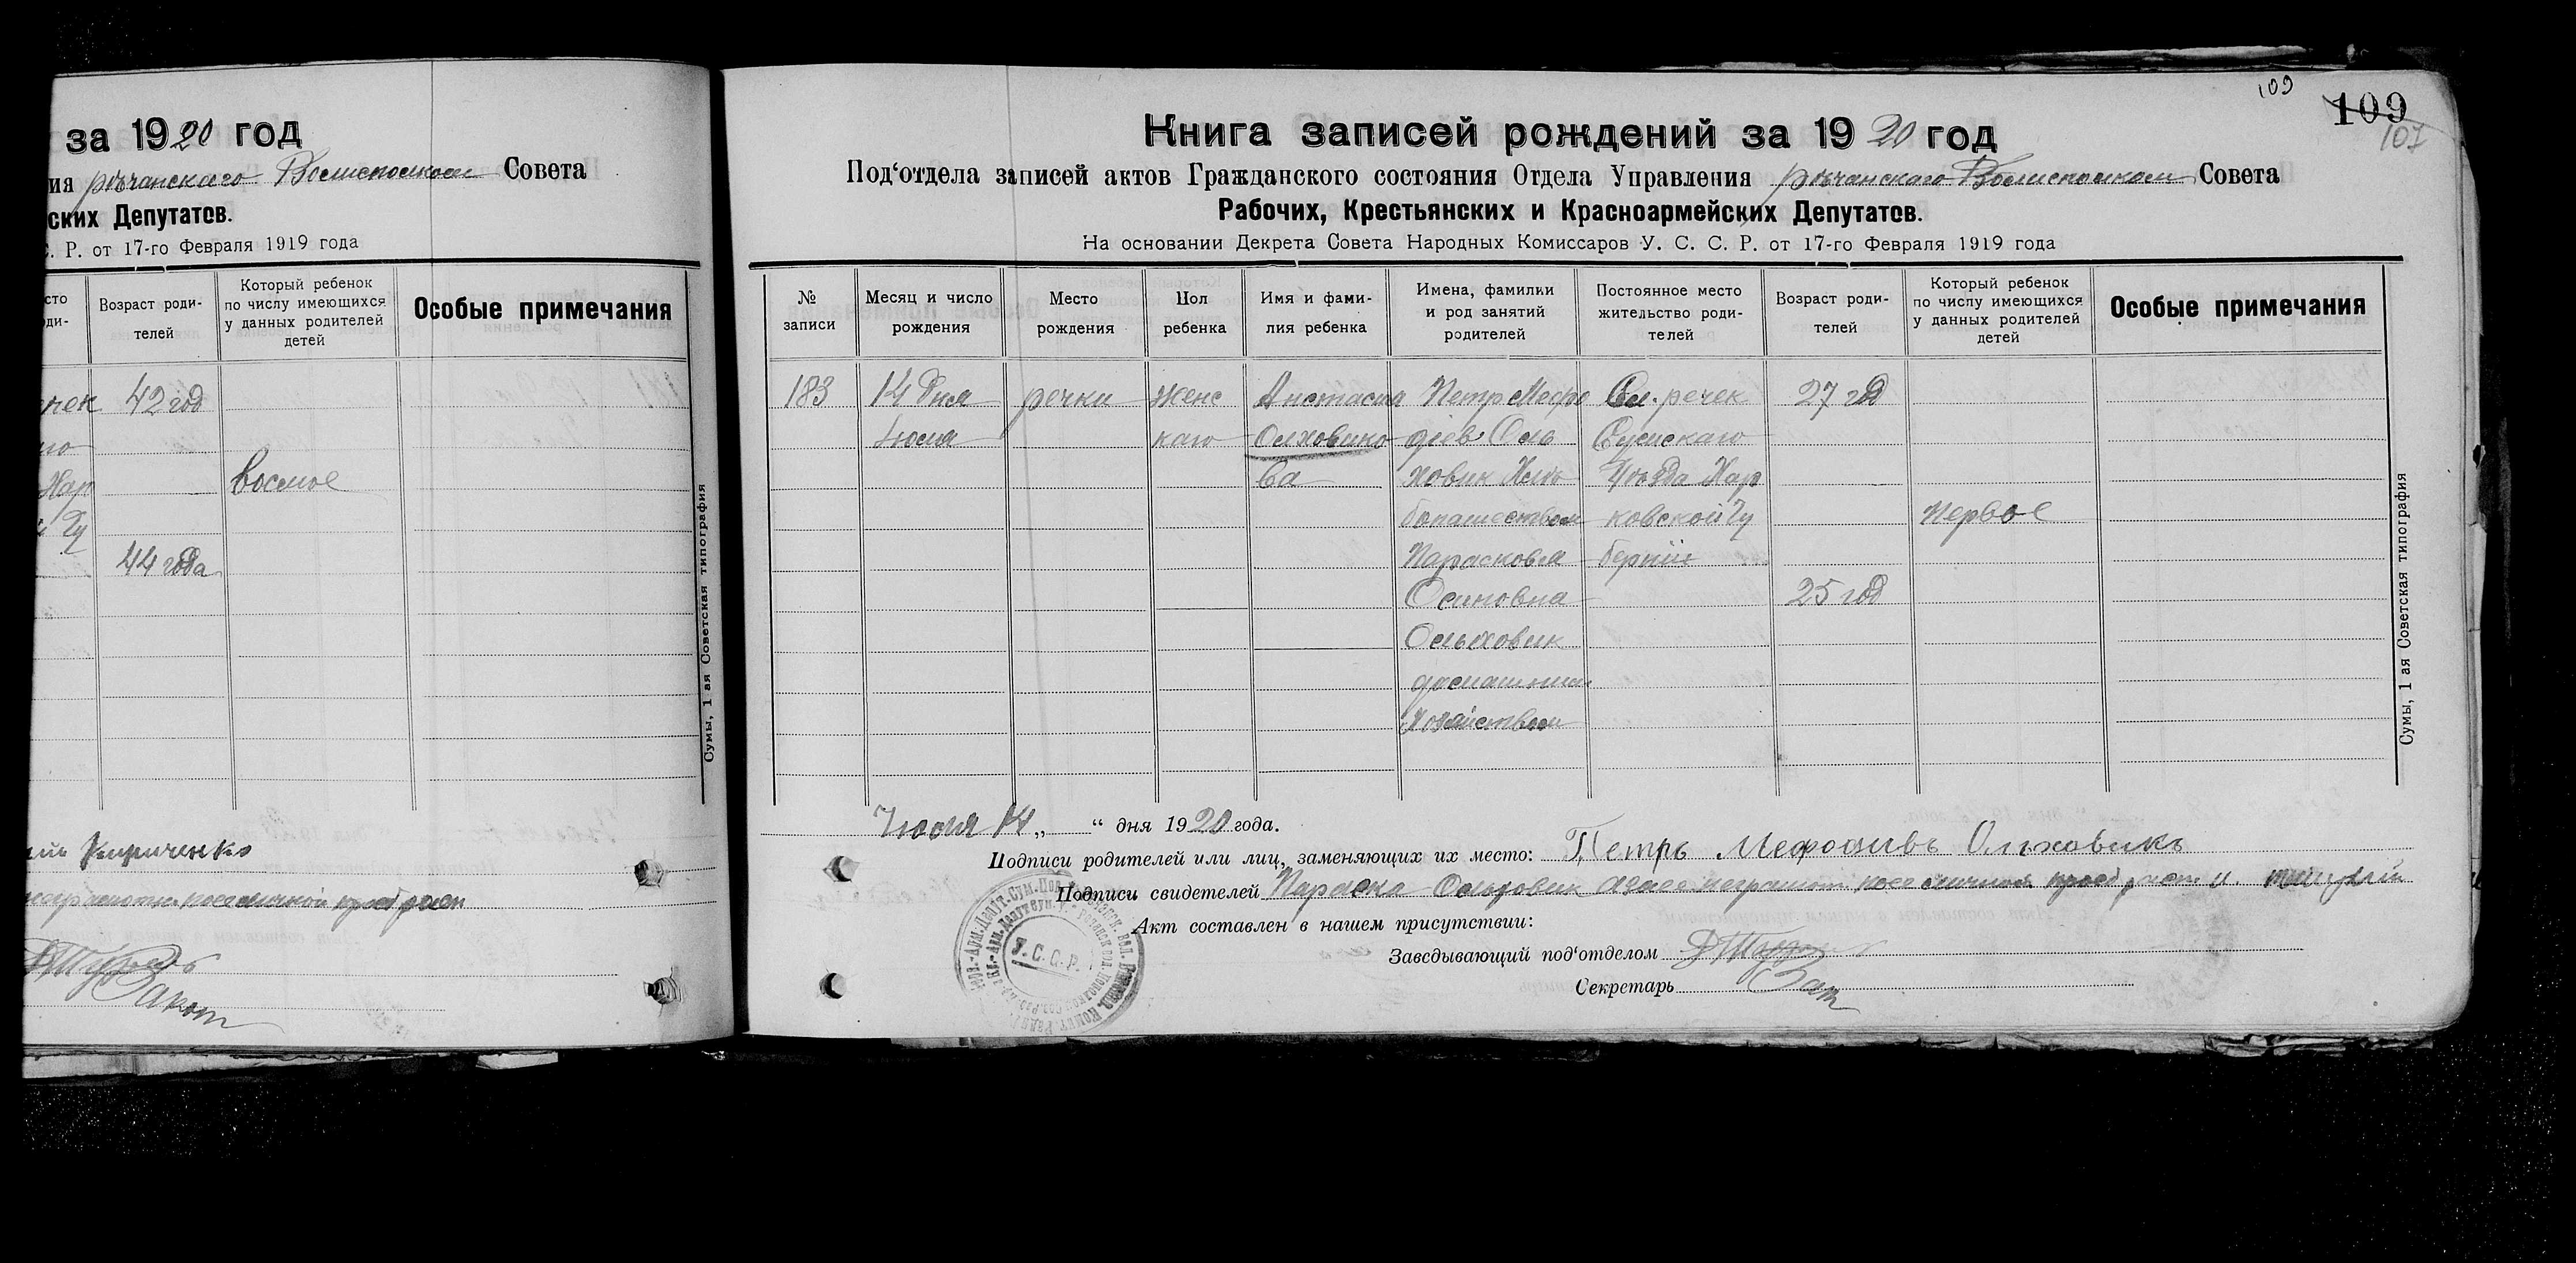 за 1920 год
ия рѣчанскаго Волисполком Совета
ских Депутатов.
С. Р. от 17-го Февраля 1919 года
сто
оди-
Возраст роди-
телей
Который ребенок
по числу имеющихся
у данных родителей
детей
Особые примечания
42 год
Хар
восмое
44 года
Сумы, 1 ая Советская типография
Кириченко
109
109
107
Книга записей рождений за 1920 год
Под‘отдела записей актов Гражданского состояния Отдела Управления рѣчанскаго Волисполком Совета
Рабочих, Крестьянских и Красноармейских Депутатов.
На основании Декрета Совета Народных Комиссаров У. С. С. Р. от 17-го Февраля 1919 года
№
записи
Месяц и число
рождения
Место
рождения
Пол
ребенка
Имя и фами-
лия ребенка
Имена, фамилии
и род занятий
родителей
Постоянное место
жительство роди-
телей
Возраст роди-
телей
Который ребенок
по числу имеющихся
у данных родителей
детей
Особые примечания
183
14 дня
Июля
речки
Женс
каго
Анастасия
Олховико
ва
Петр Мефо
диев Оль
ховик Хле
бопашеством
Парасковия
Осиповна
Ольховик
домашним
хозяйством
Сл. речек
Сумскаго
Уезда Хар
ковской Гу
бернии
27 год
25 год
Первое
Сумы, 1 ая Советская типография
Июля 14 „ “ дня 1920 года.
Подписи родителей или лиц, заменяющих их место: Петръ Мефодиевъ Ольховикъ
Подписи свидетелей Параска Ольховик
Акт составлен в нашем присутствии:
Заведывающий под‘отделом
Секретарь
У. С. С. Р.